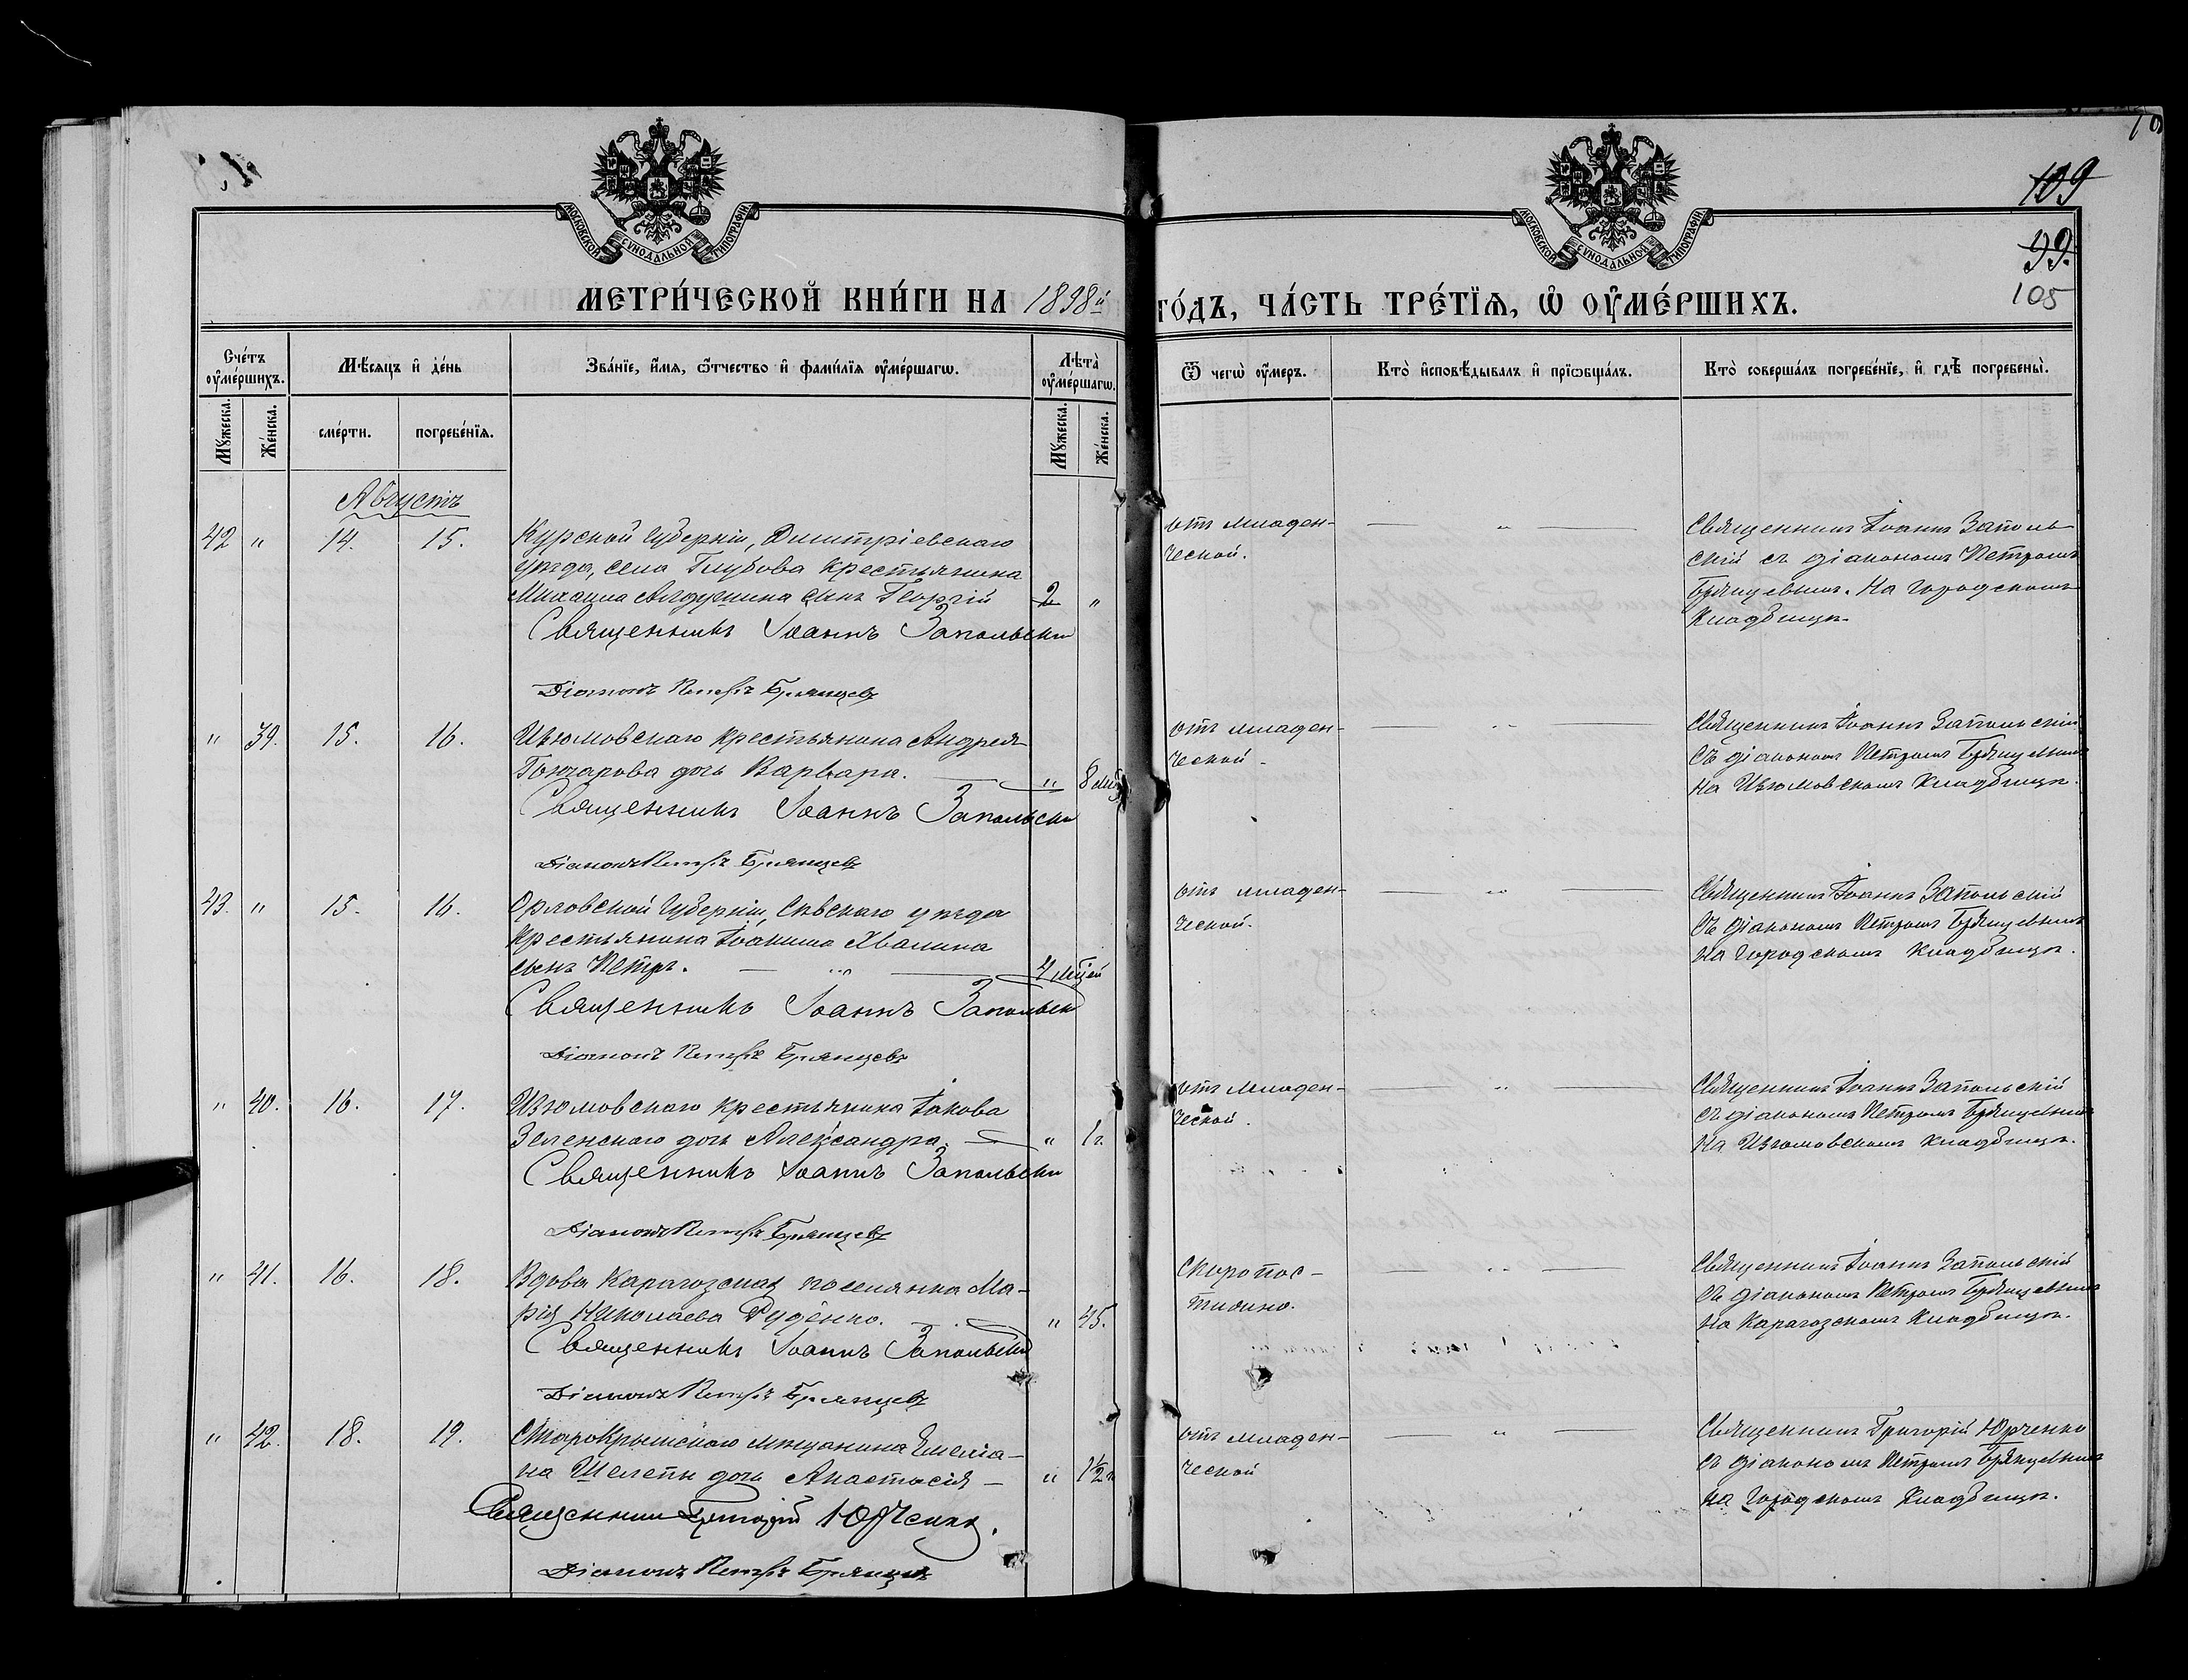 109
99.
105
МОСКОВСКОЙ СѴНОДАЛЬНОЙ ТИПОГРАФІИ
МОСКОВСКОЙ СѴНОДАЛЬНОЙ ТИПОГРАФІИ
МЕТРИ́ЧЕСКОЙ КНИ́ГИ НА 1898й ГО́ДЪ, ЧА́СТЬ ТРЕ́ТЇѦ, Ѡ҆ ОУ҆МЕ́РШИХЪ.
Сче́тъ оу҆ме́ршихъ.
Мꙋ́жеска.
Же́нска.
Мѣ́сѧцъ и҆ де́нь
сме́рти.
погребе́нїѧ.
Зва́нїе, и҆́мѧ, ѻ҆́тчество и҆ фами́лїѧ оу҆ме́ршагѡ.
Лѣ̀та оу҆ме́ршагѡ.
Мꙋ́жеска.
Же́нска.
Ѿ чегѡ̀ оу҆́меръ.
Кто̀ и҆сповѣ́дывалъ и҆ прїѡбща́лъ.
Кто̀ соверша́лъ погребе́нїе, и҆ гдѣ̀ погребены̀.
Августъ
42 " 14. 15. Курской Губерніи, Димитріевскаго
уѣзда, села Глубова крестьянина
Михаила Алдушина сынъ Георгій 2 "
Священникъ Іоаннъ Запольскій
Діаконъ Петръ Брянцевъ
отъ младен-
ческой.
Священникъ Іоаннъ Заполь-
скій съ діакономъ Петромъ
Брянцевымъ. На Городскомъ
Кладбищѣ.
" 39. 15. 16. Изюмовскаго крестьянина Андрея
Гончарова дочь Варвара. " 8 мѣс
Священникъ Іоаннъ Запольскій
Діаконъ Петръ Брянцевъ
отъ младен-
ческой
Священникъ Іоаннъ Запольскій
съ діакономъ Петромъ Брянцевымъ
на Изюмовскомъ Кладбищѣ.
43. " 15. 16. Орловской Губерніи, Сѣвскаго уѣзда
крестьянина Іоакима Хвалина
сынъ Петръ. 4 мѣсяц
Священникъ Іоаннъ Запольскій
Діаконъ Петръ Брянцевъ
отъ младен-
ческой.
Священникъ Іоаннъ Запольскій
съ діакономъ Петромъ Брянцевымъ
на Городскомъ Кладбищѣ.
" 40. 16. 17. Изюмовскаго крестьянина Іакова
Зеленскаго дочь Александра. " 1 г.
Священникъ Іоаннъ Запольскій
Діаконъ Петръ Брянцевъ
отъ младен-
ческой.
Священникъ Іоаннъ Запольскій
съ діакономъ Петромъ Брянцевымъ
на Изюмовскомъ Кладбищѣ.
" 41. 16. 18. Вдова Карагозская поселянка Ма-
рія Николаева Руденко. " 45.
Священникъ Іоаннъ Запольскій
Діаконъ Петръ Брянцевъ
Скоропос-
тижно.
Священникъ Іоаннъ Запольскій
съ діакономъ Петромъ Брянцевымъ
на Карагозскомъ Кладбищѣ.
" 42. 18. 19. Старокрымскаго мѣщанина Емелья-
на Шелепы дочь Анастасія " 1½ г
Священникъ Григорій Юрченко.
Діаконъ Петръ Брянцевъ
отъ младен-
ческой
Священникъ Григорій Юрченко
съ діакономъ Петромъ Брянцевымъ
на Городскомъ Кладбищѣ.